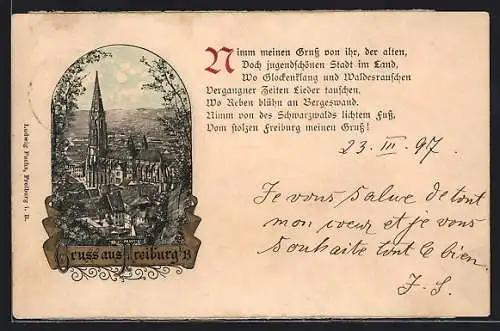 Nimm meinen Gruß von ihr, der alten,
Doch jugendschönen Stadt im Land,
Wo Glockenklang und Waldesrauschen
Vergangner Zeiten Lieder tauschen,
Wo Reben blühn an Bergeswand.
Nimm von des Schwarzwalds lichtem Fuß,
Vom stolzen Freiburg meinen Gruß!
23. III. 97.
Je vous salue de tout
mon coeur et je vous
souhaite tout le bien.
J. S.
Gruss aus Freiburg i/B
Ludwig Fuchs, Freiburg i. B.